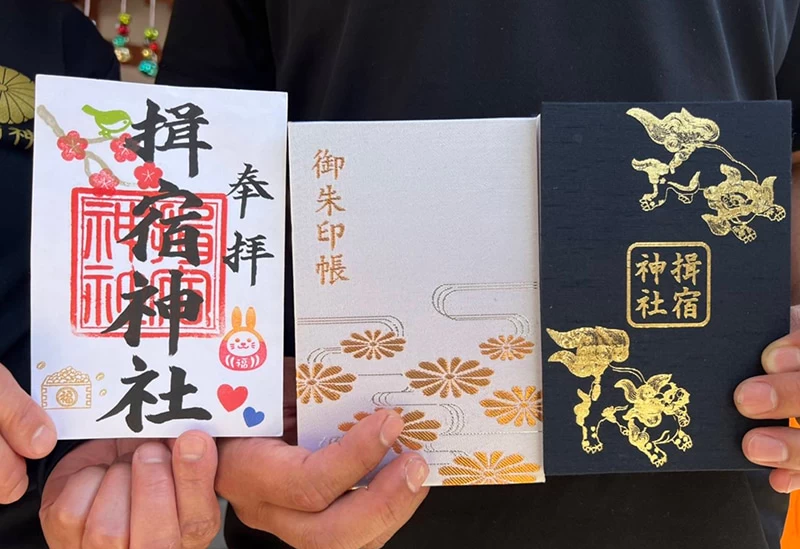 奉拝
揖宿神社
福
福
御朱印帳
揖宿
神社